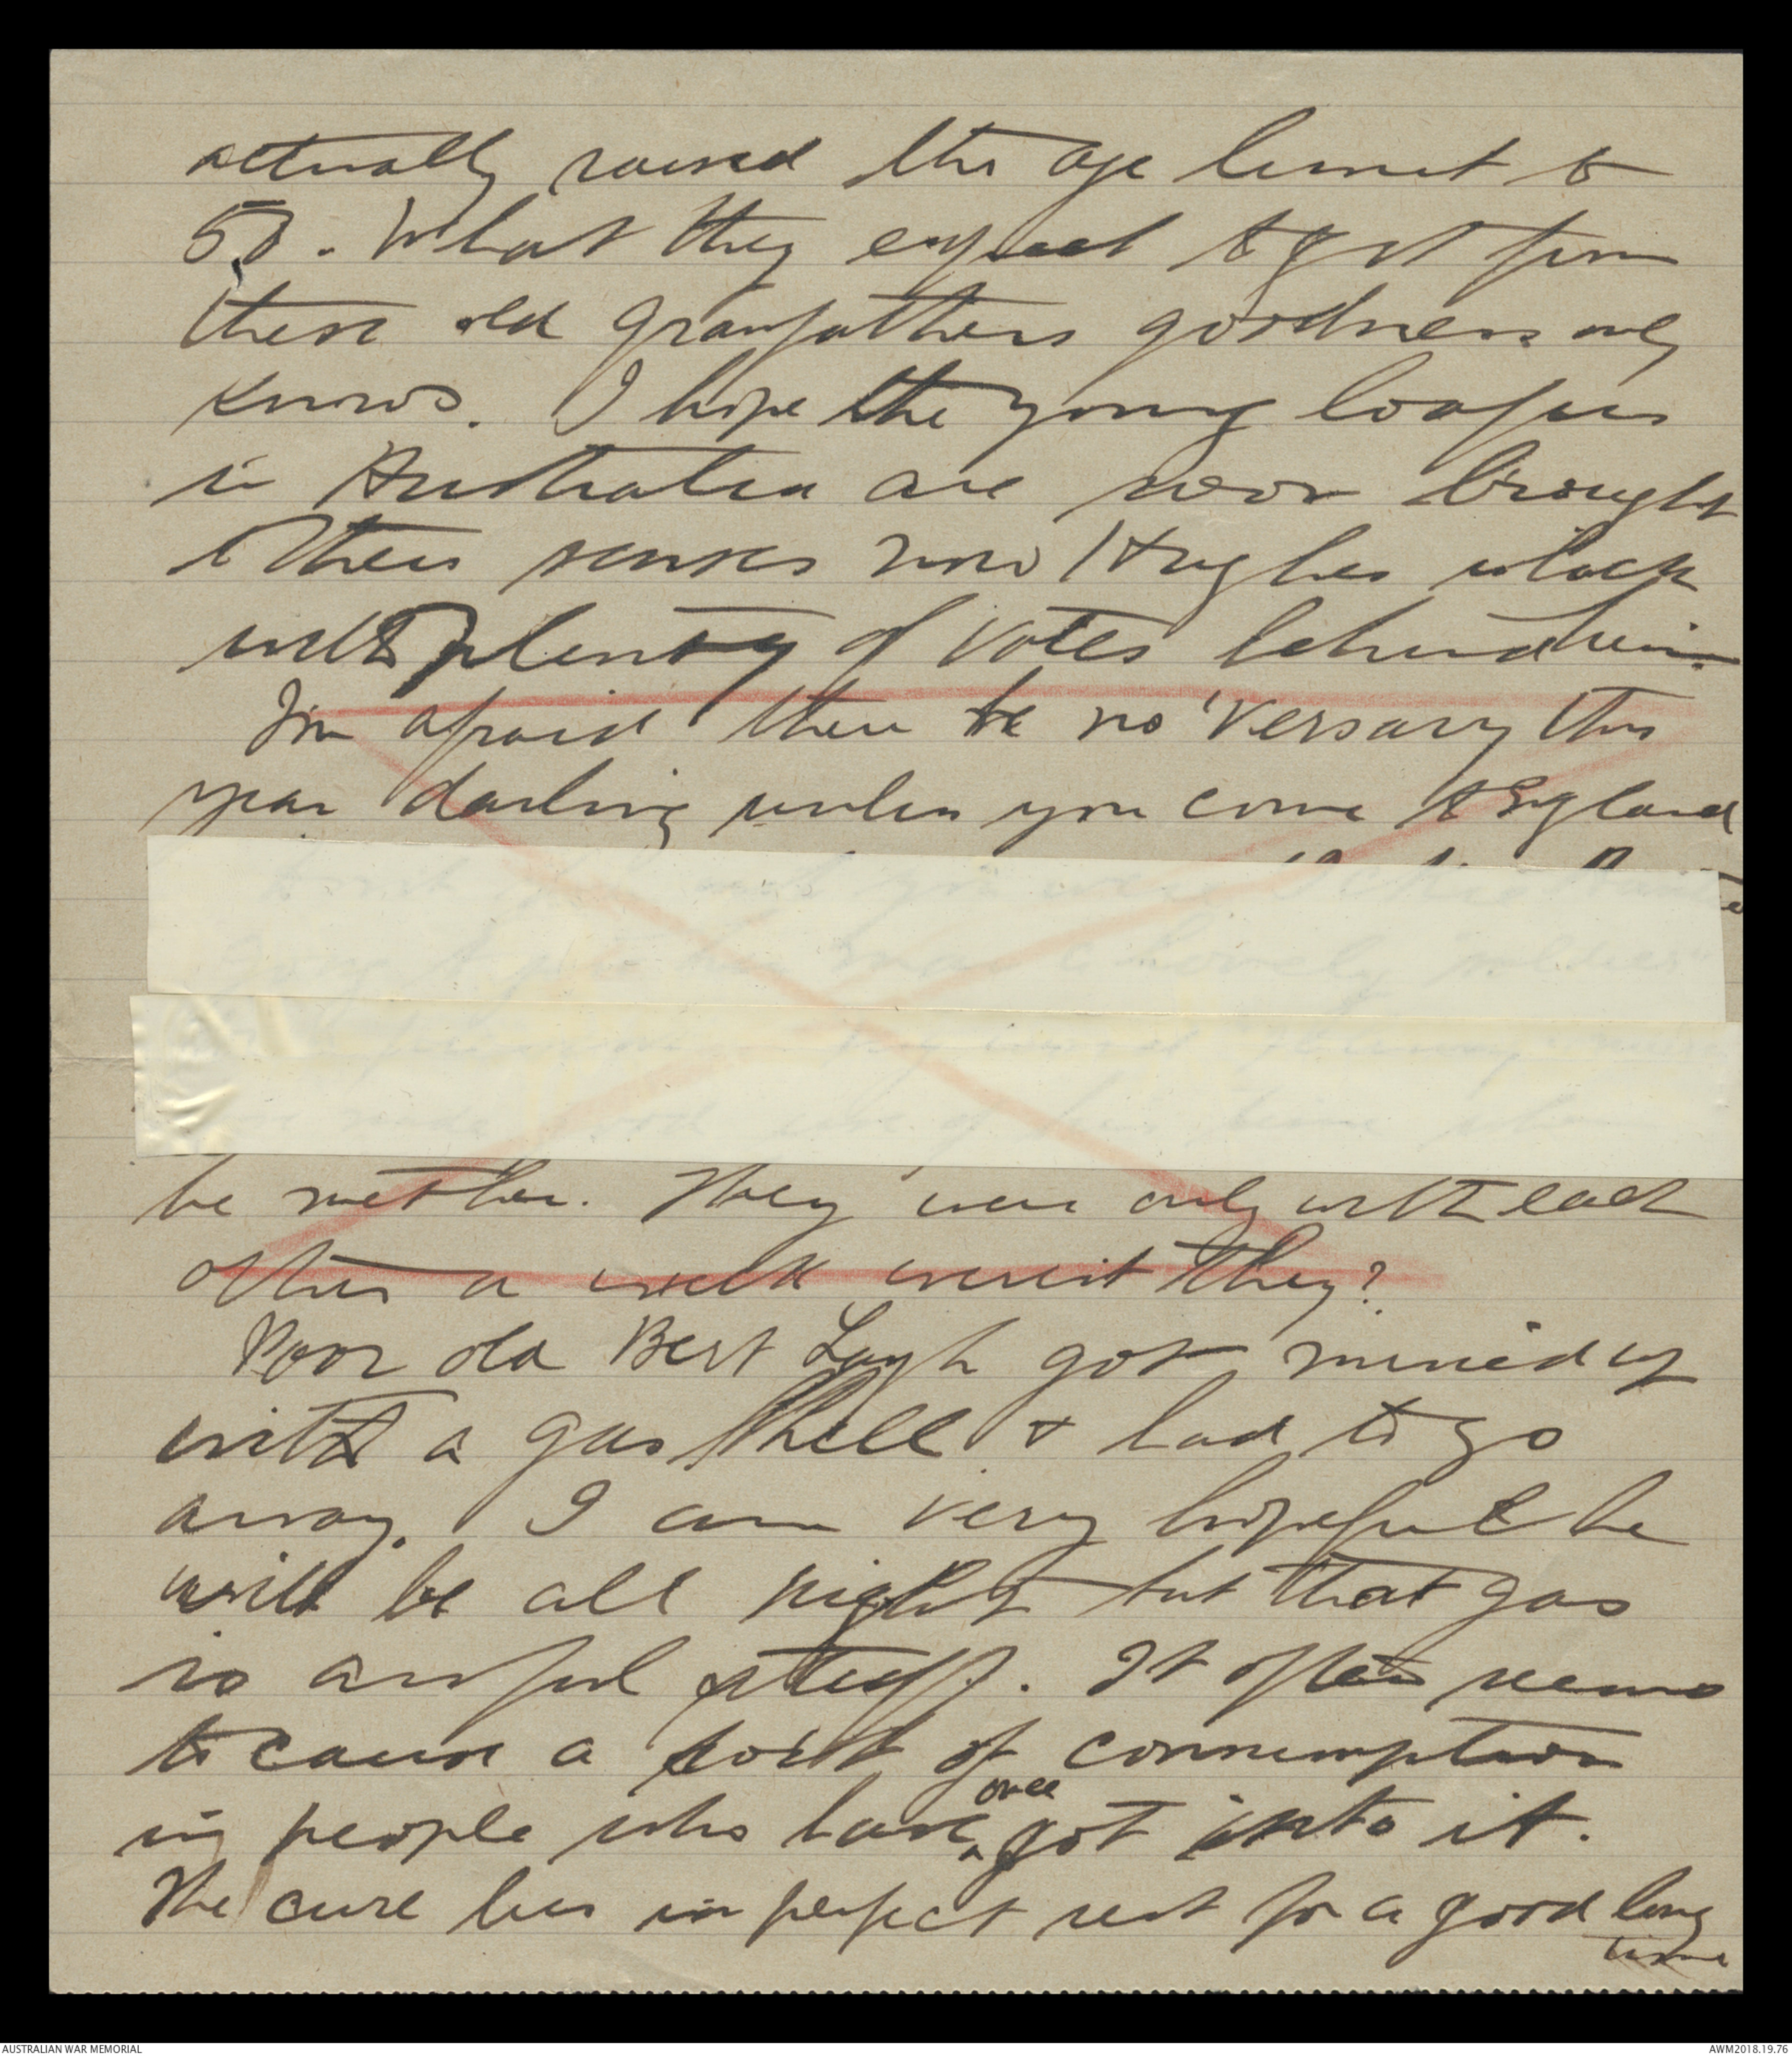 actually raised the age limit to
50. What they expect to get from
these old granfathers goodness only
knows. I hope the young loafers
in Australia are soon brought
to their senses now Hughes is back
with plenty of votes behind him.
I'm afraid there be no 'versary this
year darling unless you come to England
be mother. They were only with each
other a week weren't they?
Poor old Bert Layh got mixed up
with a gas shell & had to go
away. I am very hopeful he
will be all right but that gas
is awful stuff. It often seems
to cause a sort of consumption
in people who have once got into it.
The cure lies in perfect rest for a good long
time
AUSTRALIAN WAR MEMORIAL
AWM2018.19.76